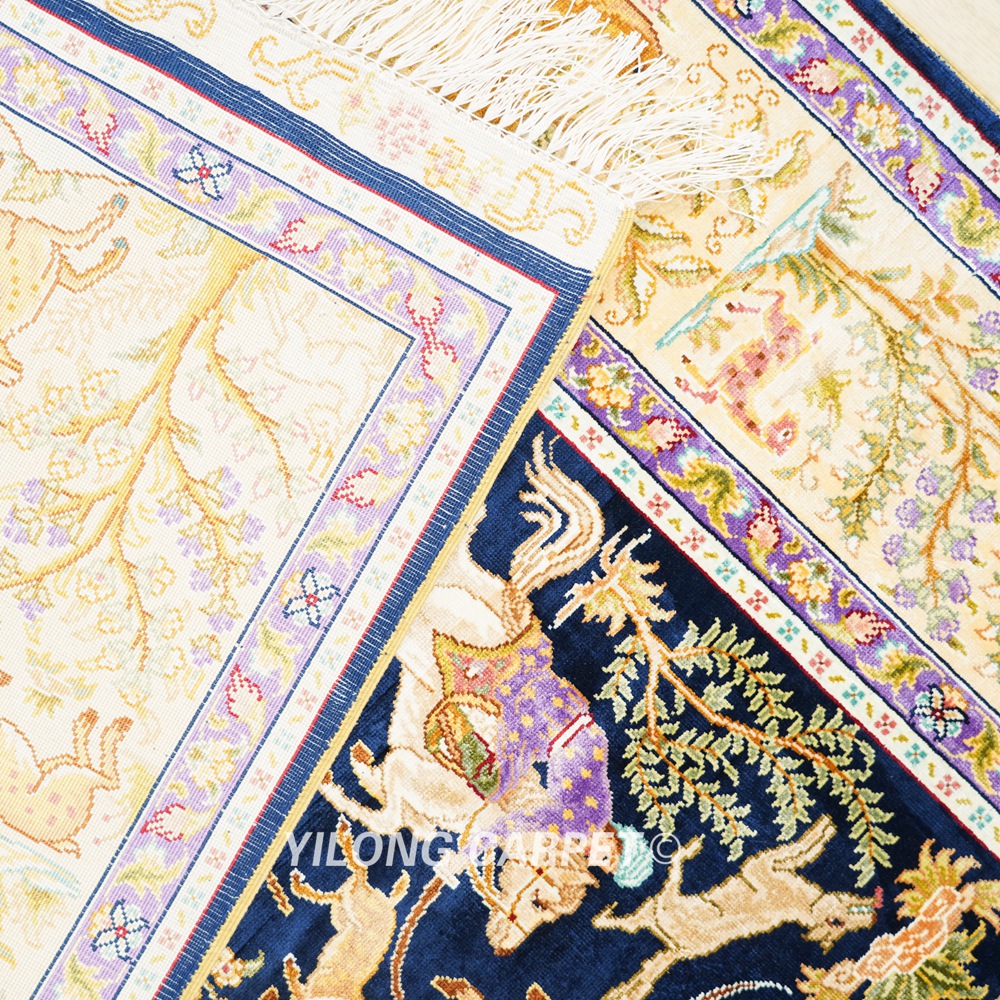 YILONG CARPET ©